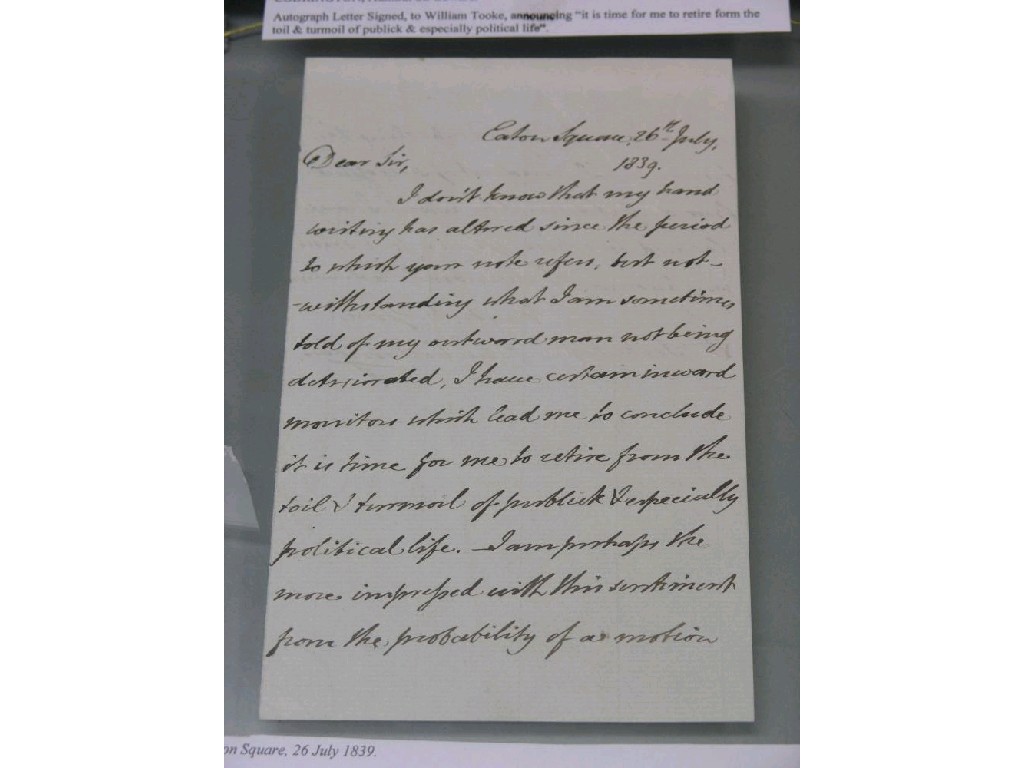 Autograph Letter Signed, to William Tooke, announcing "it is time for me to retire form the
toil & turmoil of publick & especially political life".
Eaton Square, 26th July,
1839.
Dear Sir,
I don't know that my hand
writing has altered since the period
to which your note refers, but not-
-withstanding what I am sometimes
told of my outward man not being
deteriorated, I have certain inward
monitors which lead me to conclude
it is time for me to retire from the
toil & turmoil of publick & especially
political life. – I am perhaps the
more impressed with this sentiment
from the probability of a motion
on Square, 26 July 1839.